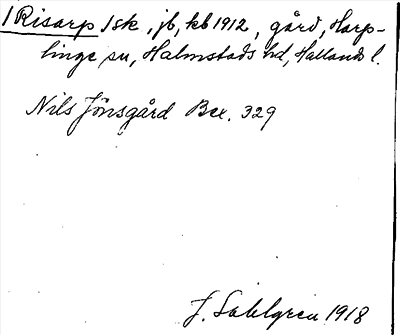 /Risarp/ sk, jb, kb 1912, gård, Harp-
linge sn, Halmstads hd, Hallands l.
Nils Jönsgård Bex. 329
J. Sahlgren 1918